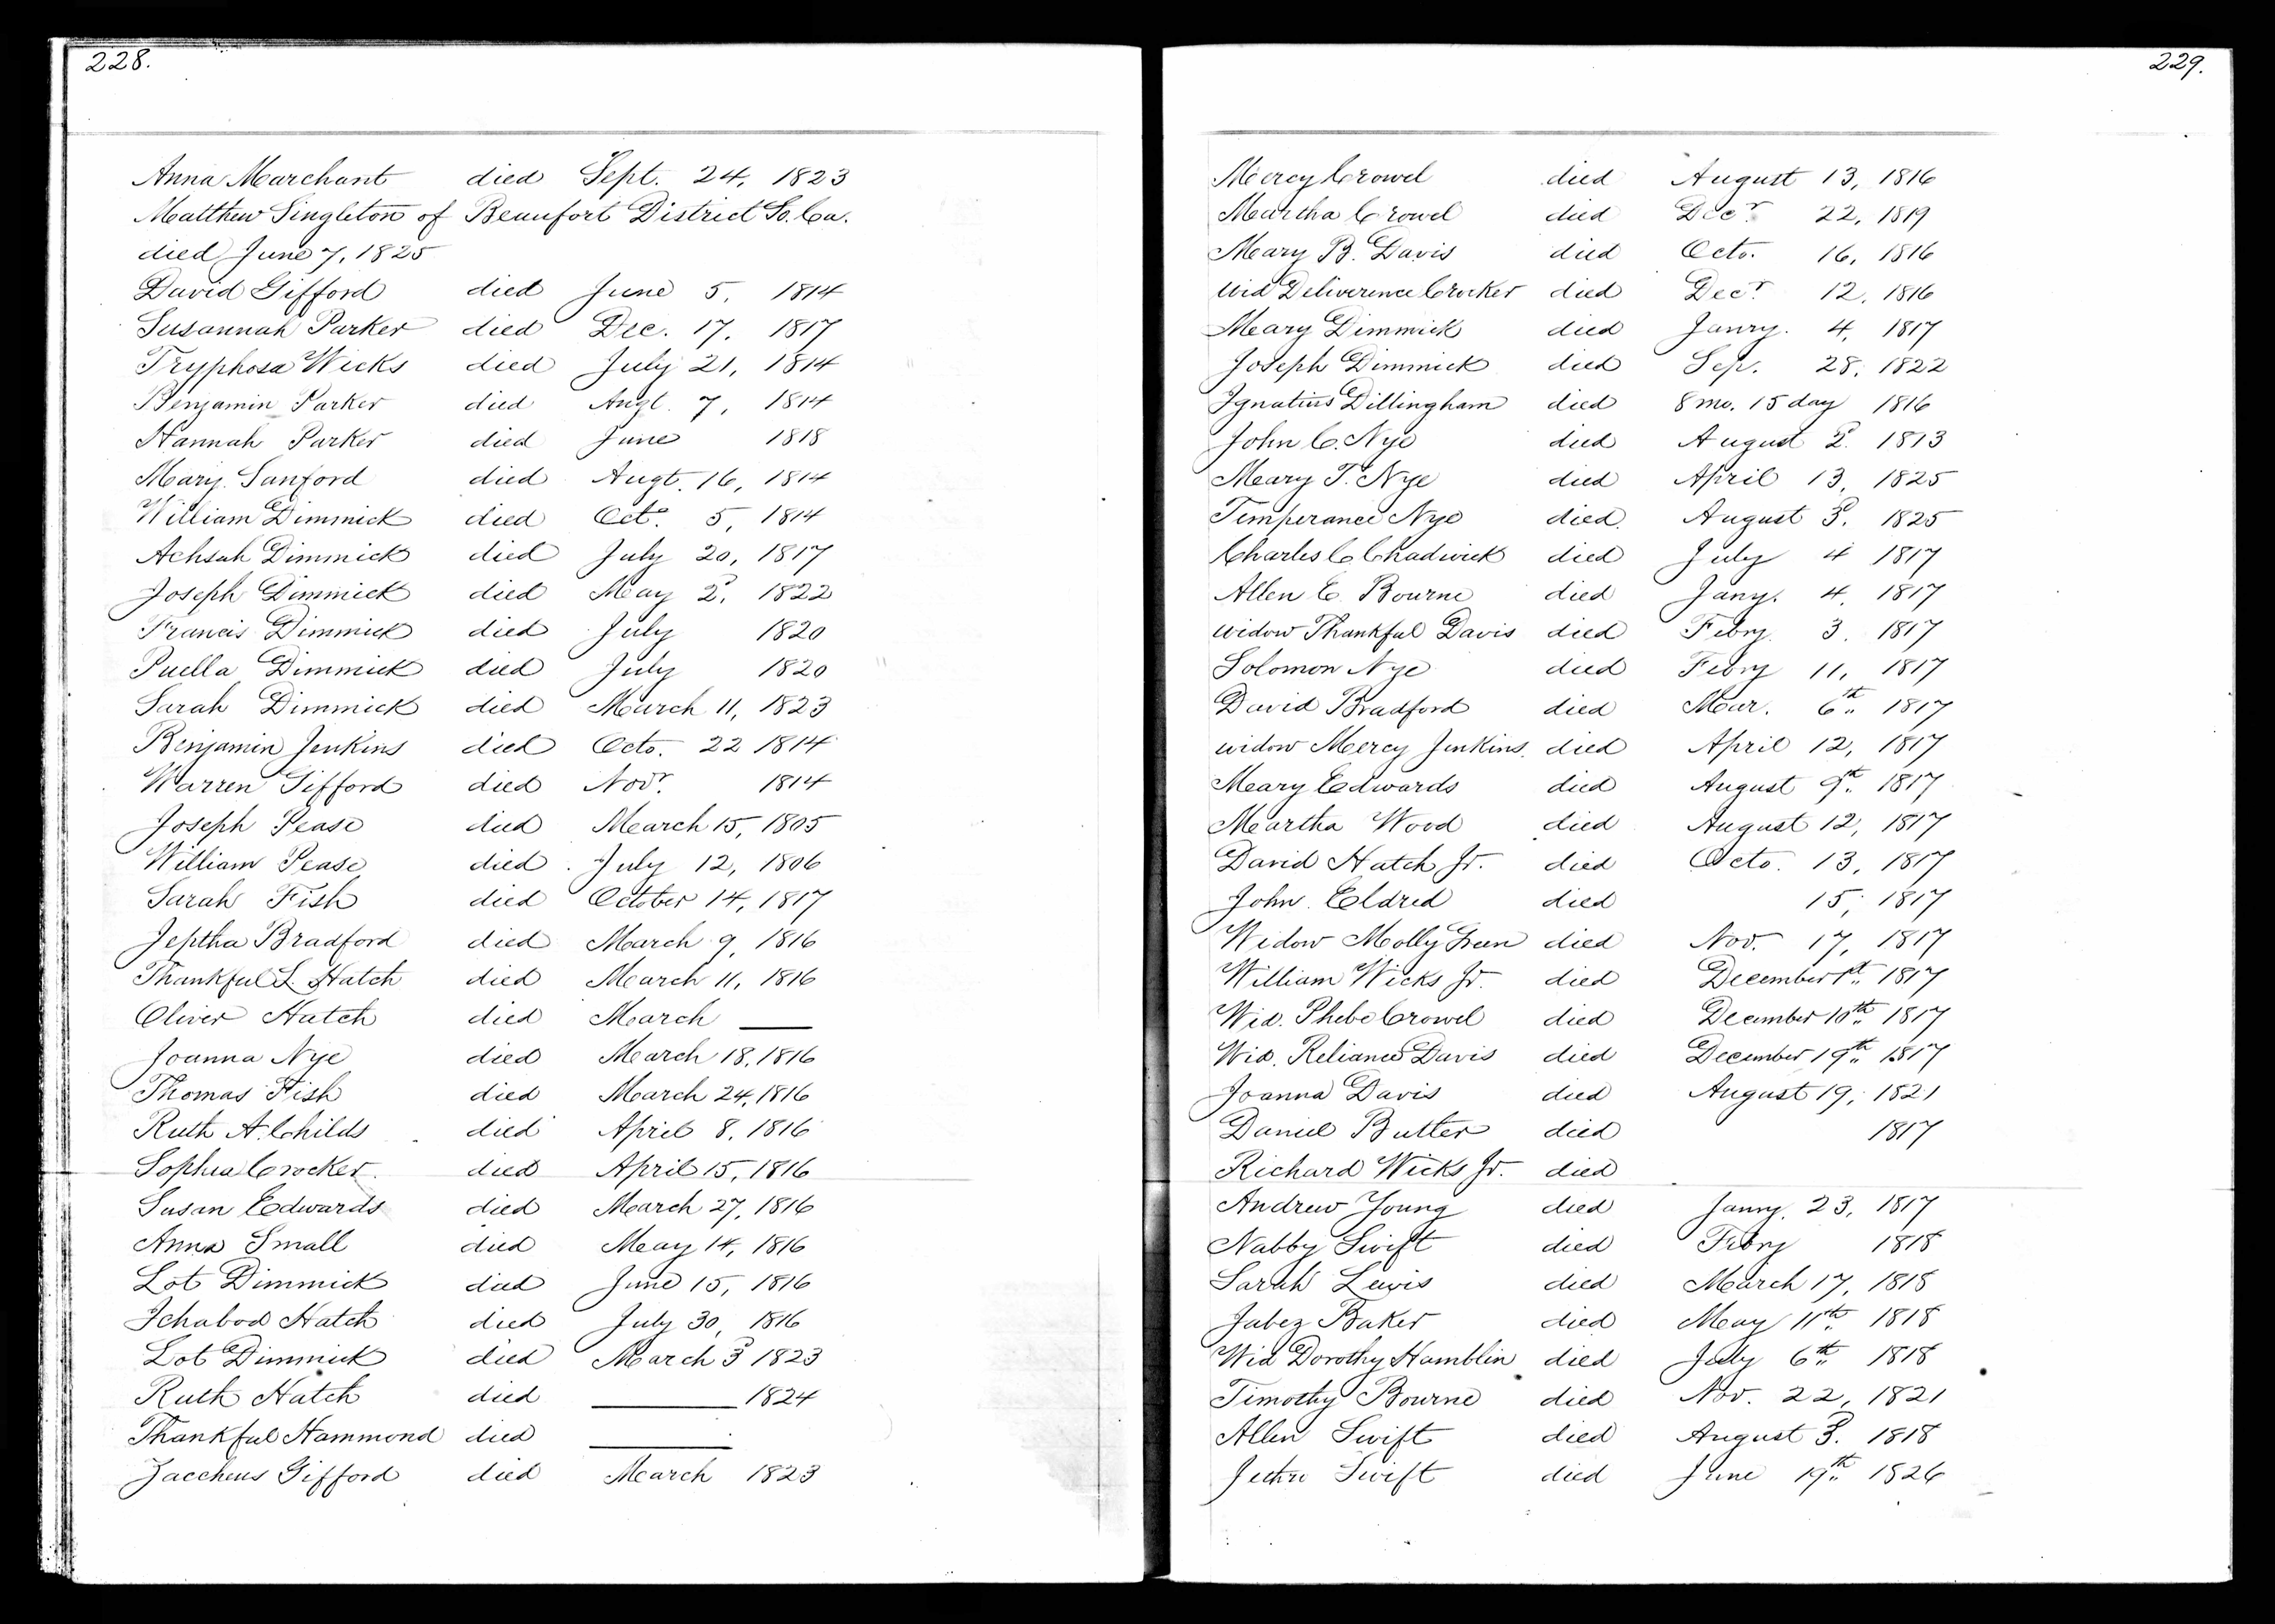 228.
Anna Marchant died Sept. 24, 1823
Matthew Singleton of Beaufort District So. Ca.
died June 7, 1825
David Gifford died June 5, 1814
Susannah Parker died Dec. 17, 1817
Tryphosa Wicks died July 21, 1814
Benjamin Parker died Augt. 7, 1814
Hannah Parker died June 1818
Mary Sanford died Augt. 16, 1814
William Dimmick died Octo. 5, 1814
Achsah Dimmick died July 20, 1817
Joseph Dimmick died May 2d, 1822
Francis Dimmick died July 1820
Puella Dimmick died July 1820
Sarah Dimmick died March 11, 1823
Benjamin Jenkins died Octo. 22 1814
Warren Gifford died Novr. 1814
Joseph Pease died March 15, 1805
William Pease died July 12, 1806
Sarah Fish died October 14, 1817
Jeptha Bradford died March 9, 1816
Thankful L. Hatch died March 11, 1816
Oliver Hatch died March ——
Joanna Nye died March 18, 1816
Thomas Fish died March 24, 1816
Ruth A. Childs died April 8, 1816
Sophia Crocker died April 15, 1816
Susan Edwards died March 27, 1816
Anna Small died May 14, 1816
Lot Dimmick died June 15, 1816
Ichabod Hatch died July 30, 1816
Lot Dimmick died March 3d 1823
Ruth Hatch died —— 1824
Thankful Hammond died ——
Zaccheus Gifford died March 1823
229.
Mercy Crowel died August 13, 1816
Martha Crowel died Decr. 22, 1819
Mary B. Davis died Octo. 16, 1816
Wid Deliverence Crocker died Decr. 12, 1816
Mary Dimmick died Janry. 4, 1817
Joseph Dimmick died Sep. 28, 1822
Ignatius Dillingham died 8 mo. 15 day 1816
John C. Nye died August 2d. 1813
Mary T. Nye died April 13, 1825
Temperance Nye died August 3d. 1825
Charles C Chadwick died July 4 1817
Allen C. Bourne died Jany. 4, 1817
widow Thankful Davis died Febry. 3. 1817
Solomon Nye died Febry 11, 1817
David Bradford died Mar. 6th 1817
widow Mercy Jenkins died April 12, 1817
Mary Edwards died August 9th 1817
Martha Wood died August 12, 1817
David Hatch Jr. died Octo. 13, 1817
John Eldred died 15, 1817
Widow Molly Green died Nov. 17, 1817
William Wicks Jr. died December 1st 1817
Wid. Phebe Crowel died December 10th 1817
Wid. Reliance Davis died December 19th 1817
Joanna Davis died August 19, 1821
Daniel Butler died 1817
Richard Wicks Jr. died
Andrew Young died Janry. 23, 1817
Nabby Swift died Febry 1818
Sarah Lewis died March 17, 1818
Jabez Baker died May 11th 1818
Wid Dorothy Hamblin died July 6th 1818
Timothy Bourne died Nov. 22, 1821
Allen Swift died August 3d. 1818
Swift died June 19th 1826